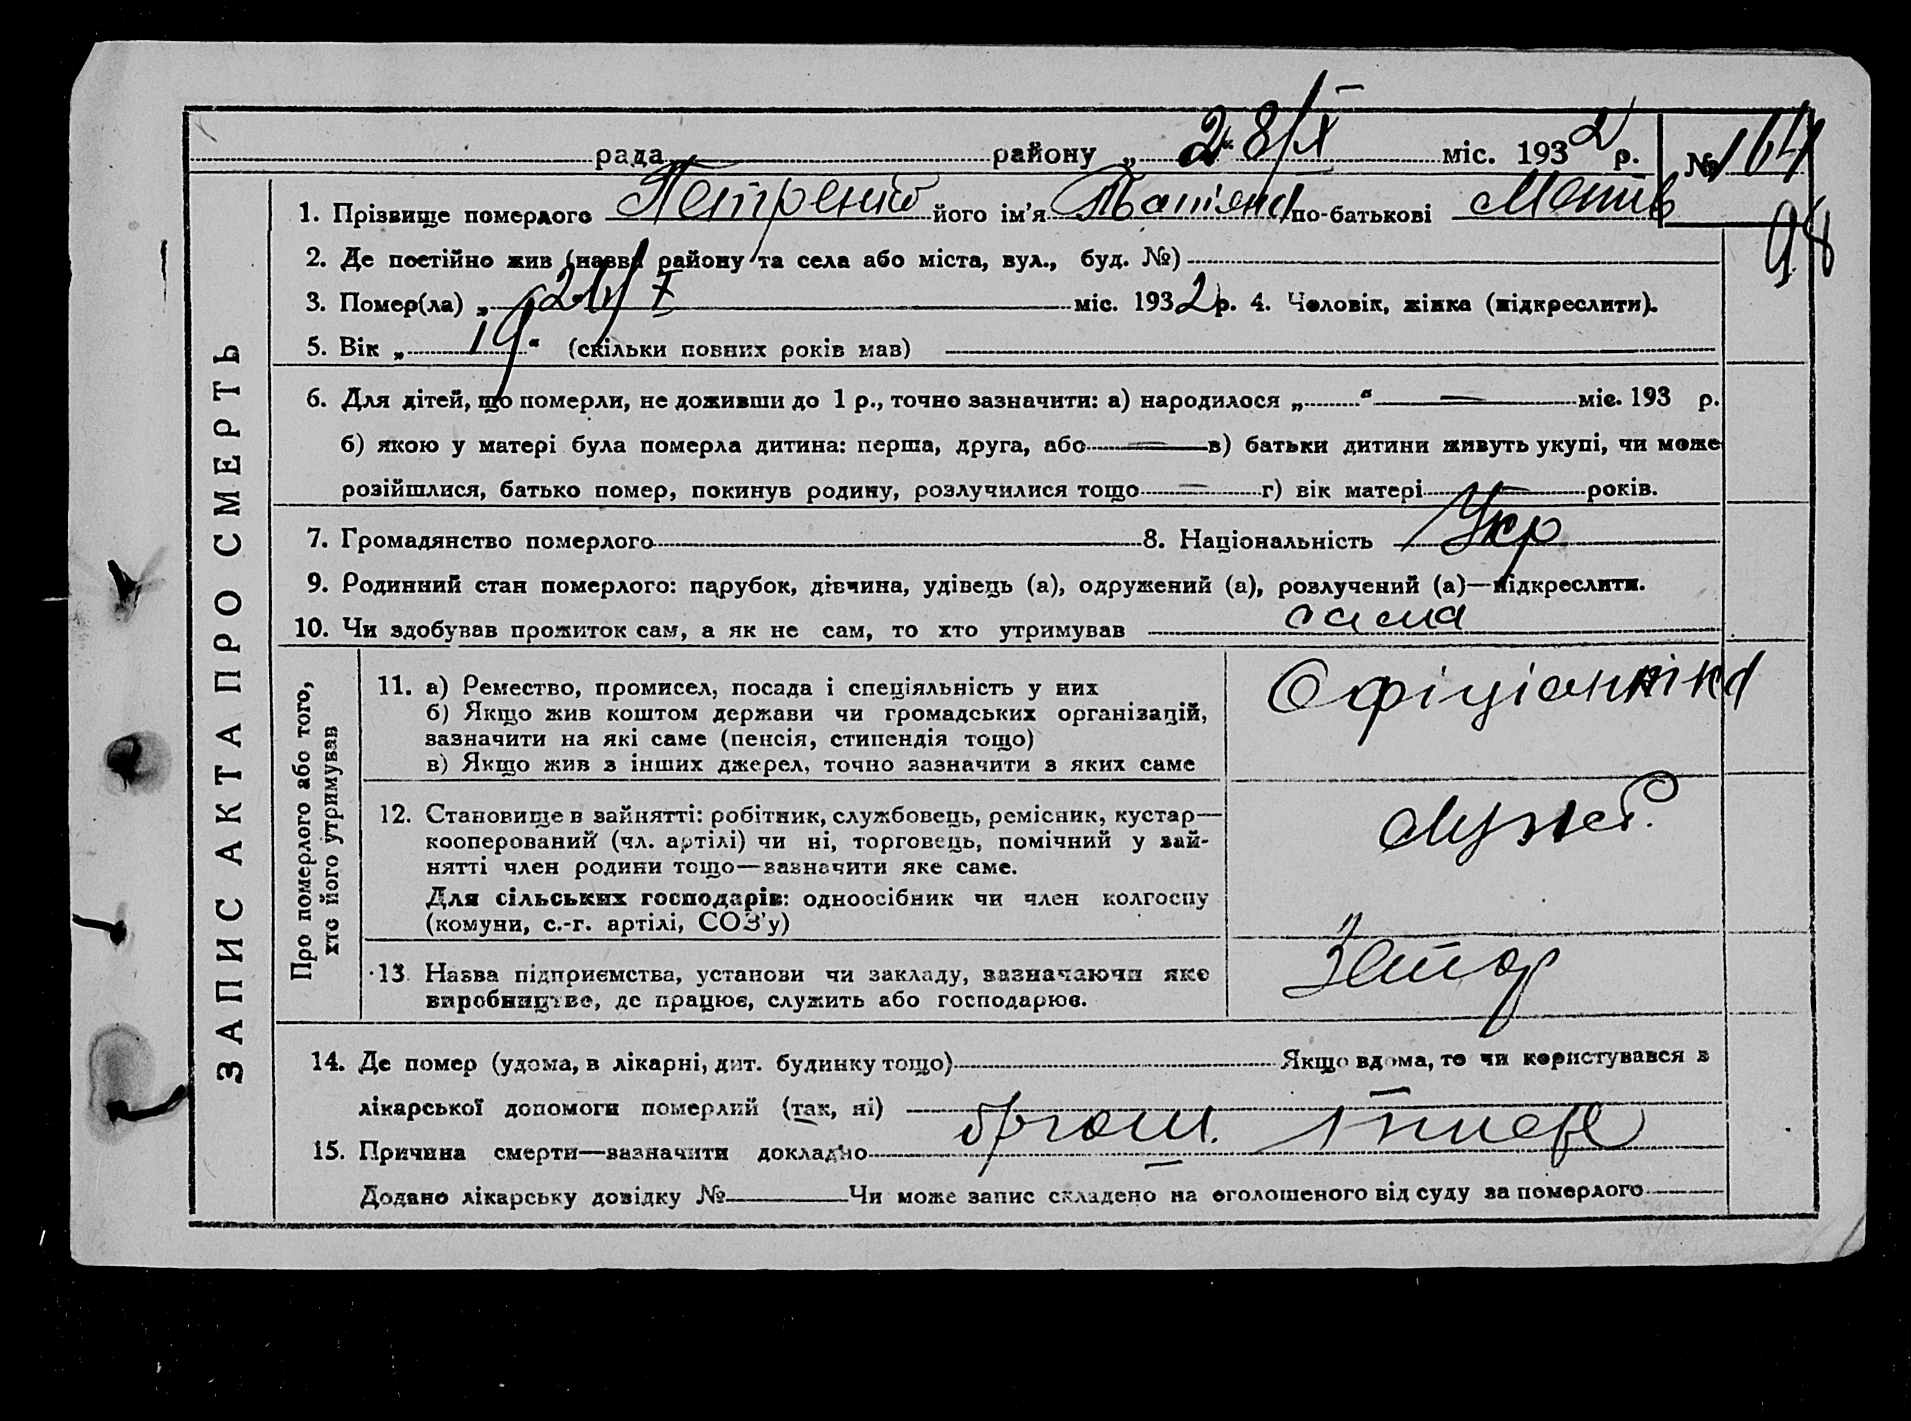 рада районy „ 28/IX міс. 1932 р. № 164
98
1. Прізвище померлого Петренко його ім'я Татіяна по-батькові
2. Де постійно жив (назва району та села або міста, вул., буд. №)
3. Помер(ла) „ міс. 1932 р. 4. Чоловік, жінка (підкреслити).
5. Вік „ 19 “ (скільки повних років мав)
6. Для дітей, що померли, не доживши до 1 р., точно зазначити: а) народилося „ “ — міс. 193 р.
б) якою у матері була померла дитина: перша, друга, або — в) батьки дитини живуть укупі, чи може
розійшлися, батько помер, покинув родину, розлучилися тощо — г) вік матері — років.
7. Громадянство померлого 8. Національність Укр
9. Родинний стан померлого: парубок, дівчина, удівець (а), одружений (а), розлучений (а)—підкреслити.
10. Чи здобував прожиток сам, а як не сам, то хто утримував сама
ЗАПИС АКТА ПРО СМЕРТЬ
Про померлого або того,
хто його утримував
11. а) Ремество, промисел, посада і спеціяльність у них
б) Якщо жив коштом держави чи громадських організацій,
зазначити на які саме (пенсія, стипендія тощо)
в) Якщо жив з інших джерел, точно зазначити з яких саме
Офіціантка
12. Становище в зайнятті: робітник, службовець, ремісник, кустар—
кооперований (чл. артілі) чи ні, торговець, помічний у зай-
нятті член родини тощо—зазначити яке саме.
Для сільських господарів: одноосібник чи член колгоспу
(комуни, с.-г. артілі, СОЗ'у)
служб.
13. Назва підприємства, установи чи закладу, зазначаючи яке
виробництво, де працює, служить або господарює.
14. Де помер (удома, в лікарні, дит. будинку тощо) Якщо вдома, то чи користувався з
лікарської допомоги померлий (так, ні)
15. Причина смерти—зазначити докладно
Додано лікарську довідку № Чи може запис складено на оголошеного від суду за померлого